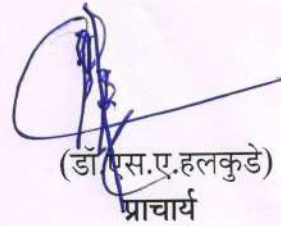 (डॉ.एस.ए.हलकुडे)
प्राचार्य